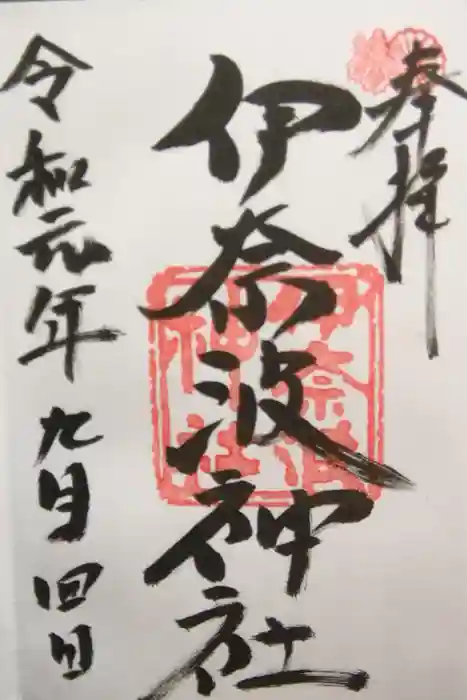 奉拝
伊奈波神社
令和元年九月四日
伊奈波
神社